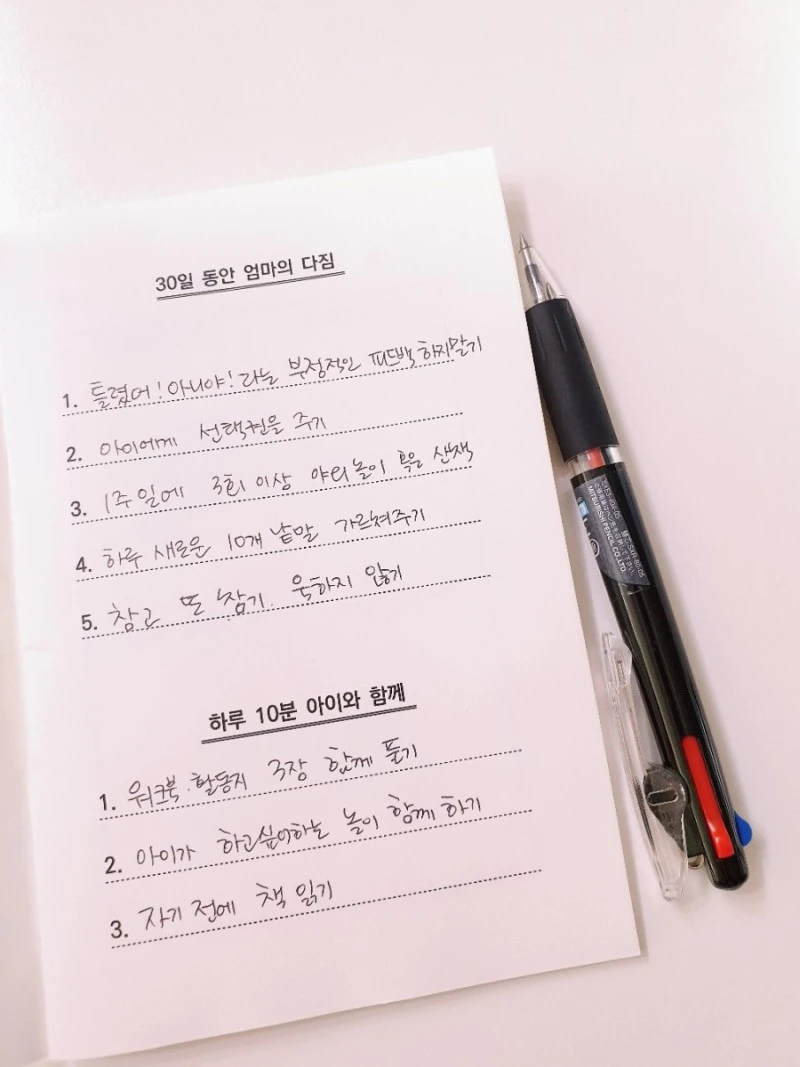 30일 동안 엄마의 다짐
1. 틀렸어! 아니야! 라는 부정적인 피드백 하지말기
2. 아이에게 선택권을 주기
3. 1주일에 3회 이상 야외놀이 혹은 산책
4. 하루 새로운 10개 낱말 가르쳐주기
5. 참고 또 참기. 욱하지 않기
하루 10분 아이와 함께
1. 워크북·활동지 3장 함께 풀기
2. 아이가 하고싶어하는 놀이 함께 하기
3. 자기 전에 책 읽기
MITSUBISHI PENCIL CO.,LTD.